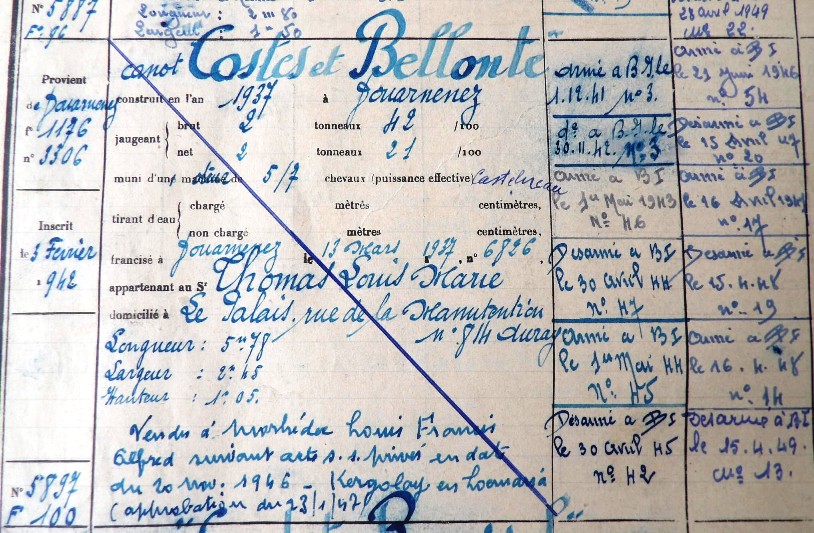 N° 5887
F° 96
Longueur : 2m80
Largeur : 1m50
28 avril 1949
N° 22.
Provient
de Douarnenez
f° 1126
n° 3306
Inscrit
le 3 Fevrier
1942
N° 5897
F° 100
canot Costes et Bellonte
construit en l'an 1937 à Douarnenez
jaugeant { brut 2 tonneaux 42 /100
net 2 tonneaux 21 /100
muni d'un de 5/7 chevaux (puissance effective)
tirant d'eau { chargé mètres centimètres,
non chargé mètres centimètres,
francisé à Douarnenez le 13 Mars 1937, n° 6826,
appartenant au Sr Thomas Louis Marie
domicilié à Le Palais, rue de la Manutention
n° 814 Auray
Longueur : 5m78
Largeur : 2m45
Hauteur : 1m05.
Vendu à Louis Francis
Alfred suivant acte s.s. privés en date
du 20 nov. 1946 - Kergolay en
(approbation du 23/1/47)
armé à B.I. le
1.12.41 n° 3.
d° à B.I. le
30.11.42. n° 3
armé à BI
le 1er Mai 1943
N° 46
Desarmé à BI
le 30 avril 44
n° 47
armé à BI
le 1er Mai 44
N° 45
Désarmé à BI
le 30 avril 45
n° 42
armé à BI
le 21 Juin 1946
n° 54
Desarmé à BI
le 15 avril 47
n° 20
armé à BI
le 16 avril 1947
n° 17
Desarmé à BI
le 15.4.48
n° 19
armé à BI
le 16.4.48
n° 14
Desarmé à BI
le 15.4.49.
N° 13.